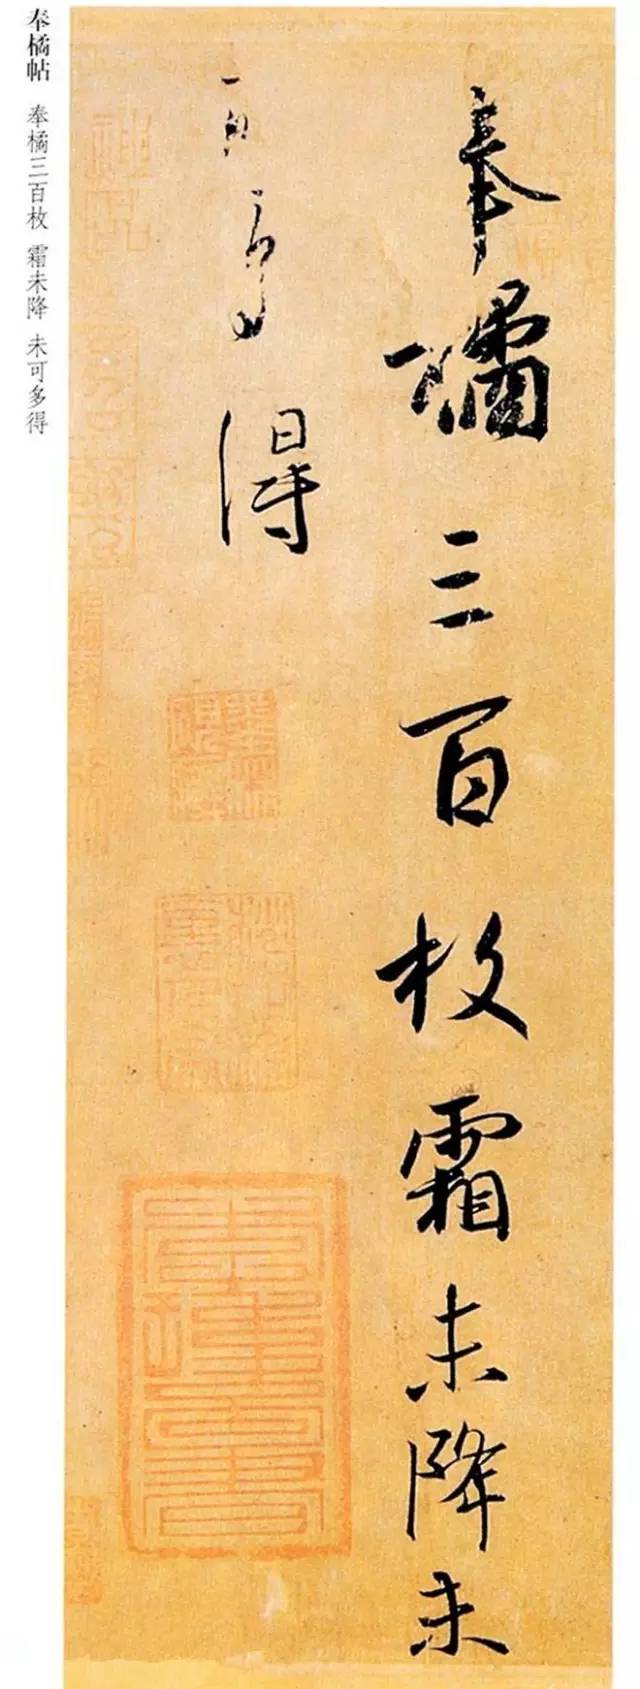 奉橘三百枚霜未降未
可多得
奉橘帖 奉橘三百枚 霜未降 未可多得